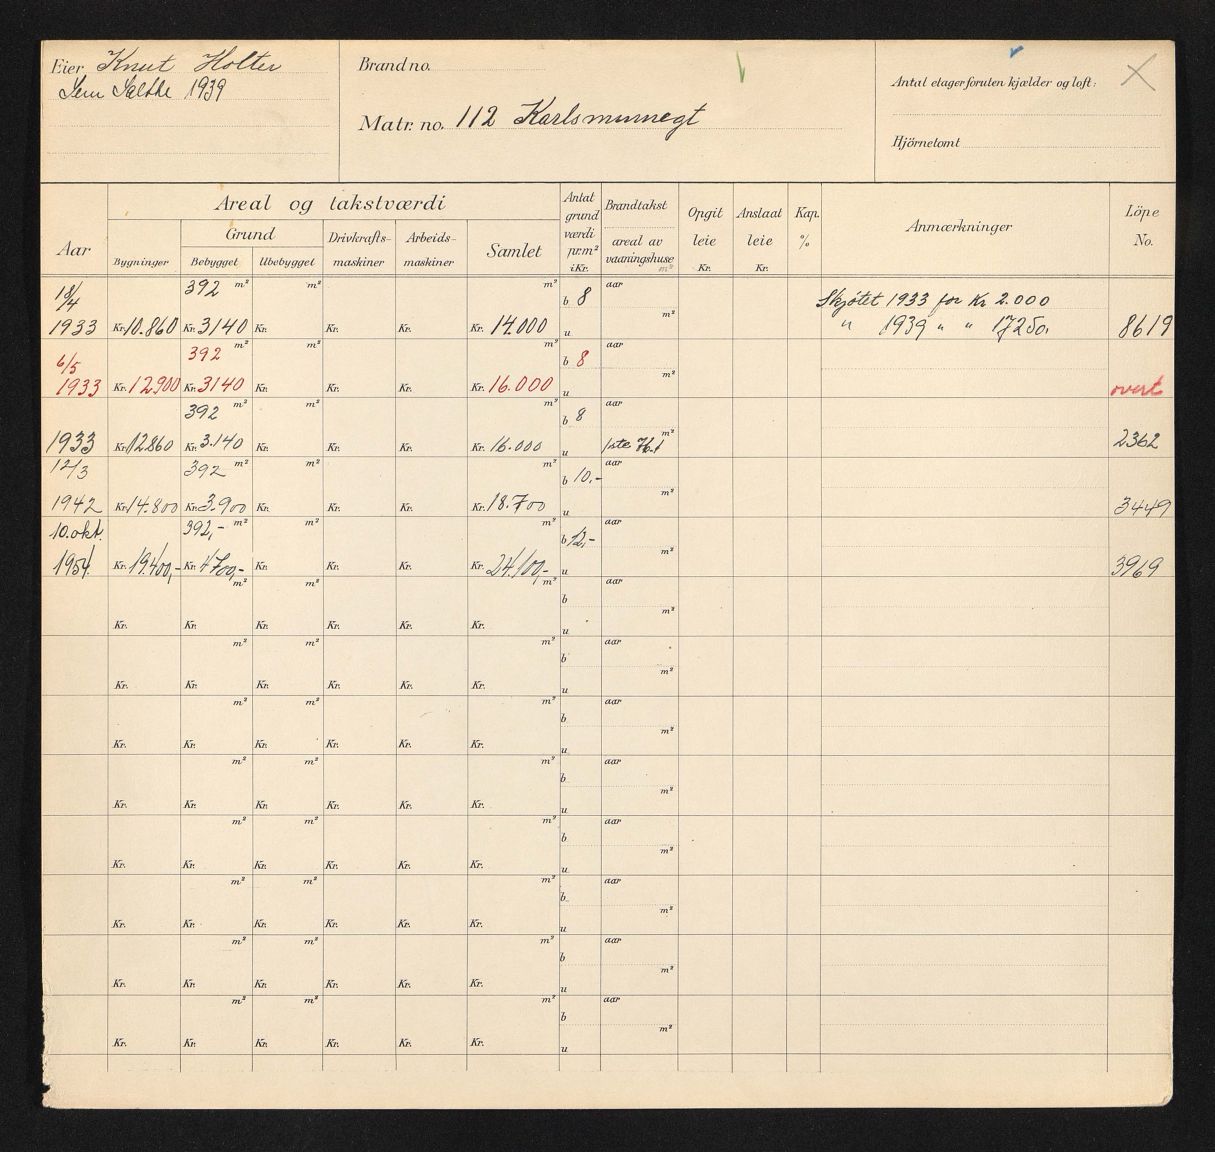 Eier Knut Holter
1939
Brand no.
Matr. no. 112 Karlsminnegt
Antal etager foruten kjælder og loft:
Hjörnetomt
Aar
Areal og takstværdi
Bygninger
Grund
Bebygget Ubebygget
Drivkrafts-maskiner
Arbeids-maskiner
Samlet
Antat grundværdi pr. m² i Kr.
Brandtakst
areal av vaaningshuse m²
Opgit leie Kr.
Anslaat leie Kr.
Kap. %
Anmærkninger
Löpe No.
18/4 392 m² m² m² b 8 aar Skjøtet 1933 for Kr 2.000
1933 Kr. 10.860 Kr. 3140 Kr. Kr. Kr. Kr. 14.000 u m² " 1939 " " 17250. 8619
6/5 392 m² m² m² b 8 aar
1933 Kr. 12900 Kr. 3140 Kr. Kr. Kr. Kr. 16.000 u m² overt
392 m² m² m² b 8 aar
1933 Kr. 12860 Kr. 3.140 Kr. Kr. Kr. Kr. 16.000 u 1ste m² 2362
12/3 392 m² m² m² b 10,- aar
1942 Kr. 14.800 Kr. 3.900 Kr. Kr. Kr. Kr. 18.700 u m² 3449
10. okt. 392,- m² m² m² b 12,- aar
1954. Kr. 19.400,- Kr. 4700,- Kr. Kr. Kr. Kr. 24.100,- u m² 3969
m² m² m² b aar
Kr. Kr. Kr. Kr. Kr. Kr. u m²
m² m² m² b aar
Kr. Kr. Kr. Kr. Kr. Kr. u m²
m² m² m² b aar
Kr. Kr. Kr. Kr. Kr. Kr. u m²
m² m² m² b aar
Kr. Kr. Kr. Kr. Kr. Kr. u m²
m² m² m² b aar
Kr. Kr. Kr. Kr. Kr. Kr. u m²
m² m² m² b aar
Kr. Kr. Kr. Kr. Kr. Kr. u m²
m² m² m² b aar
Kr. Kr. Kr. Kr. Kr. Kr. u m²
m² m² m² b aar
Kr. Kr. Kr. Kr. Kr. Kr. u m²